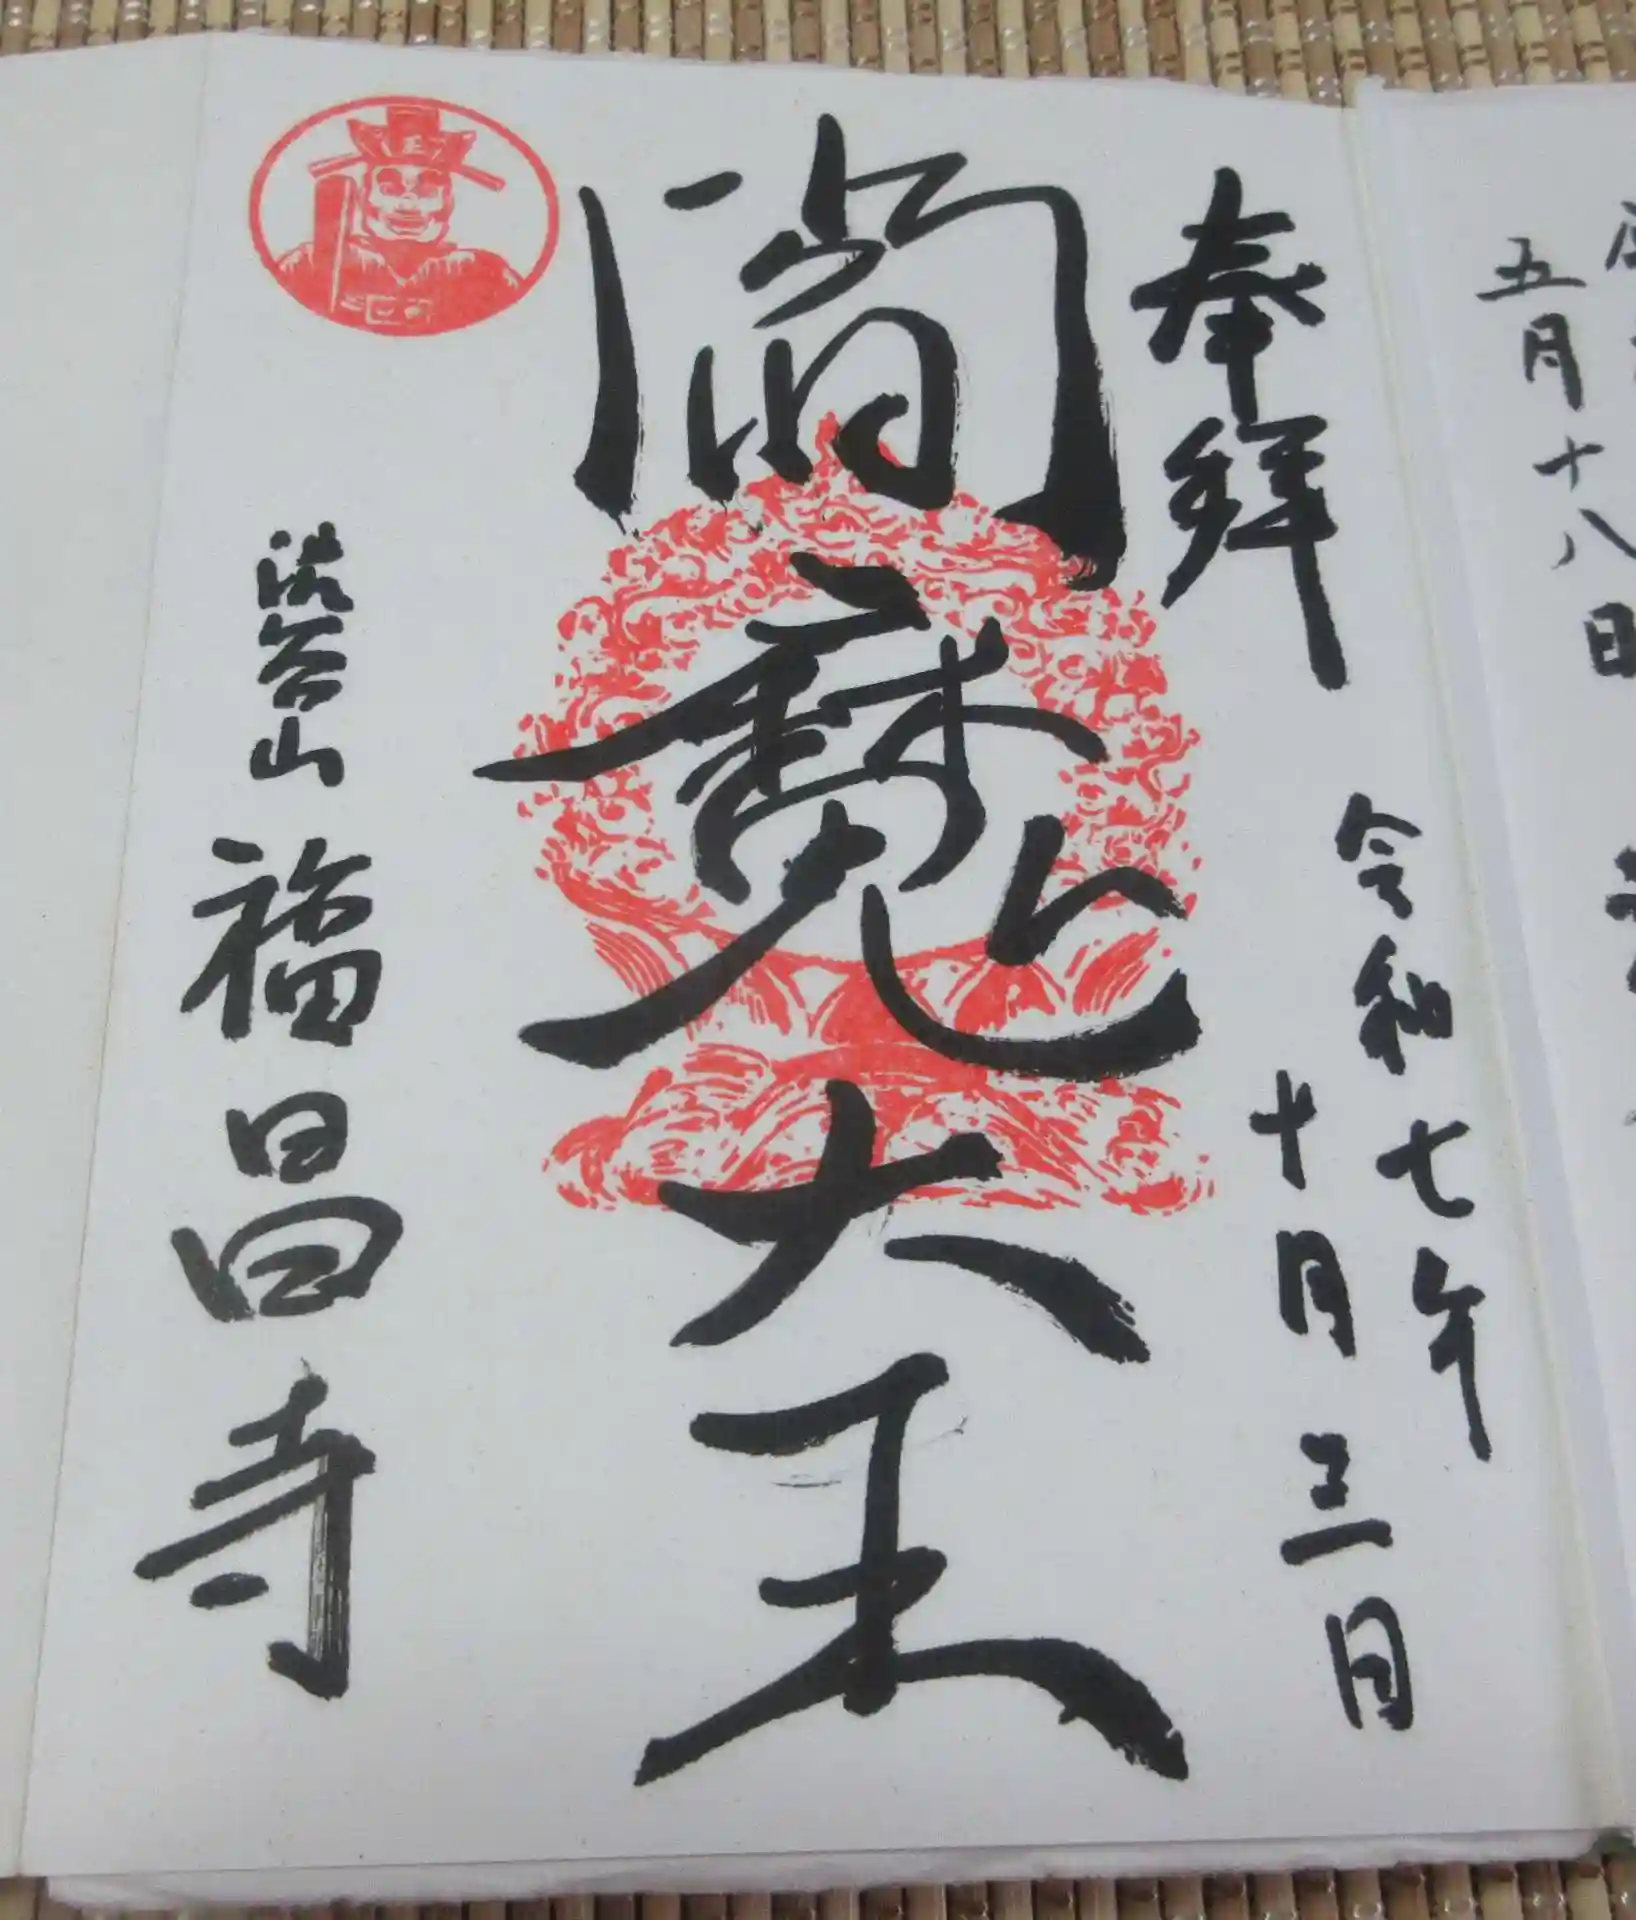 五月十八日
奉拝
令和七年
十月三日
閻魔大王
渋谷山 福昌寺
王